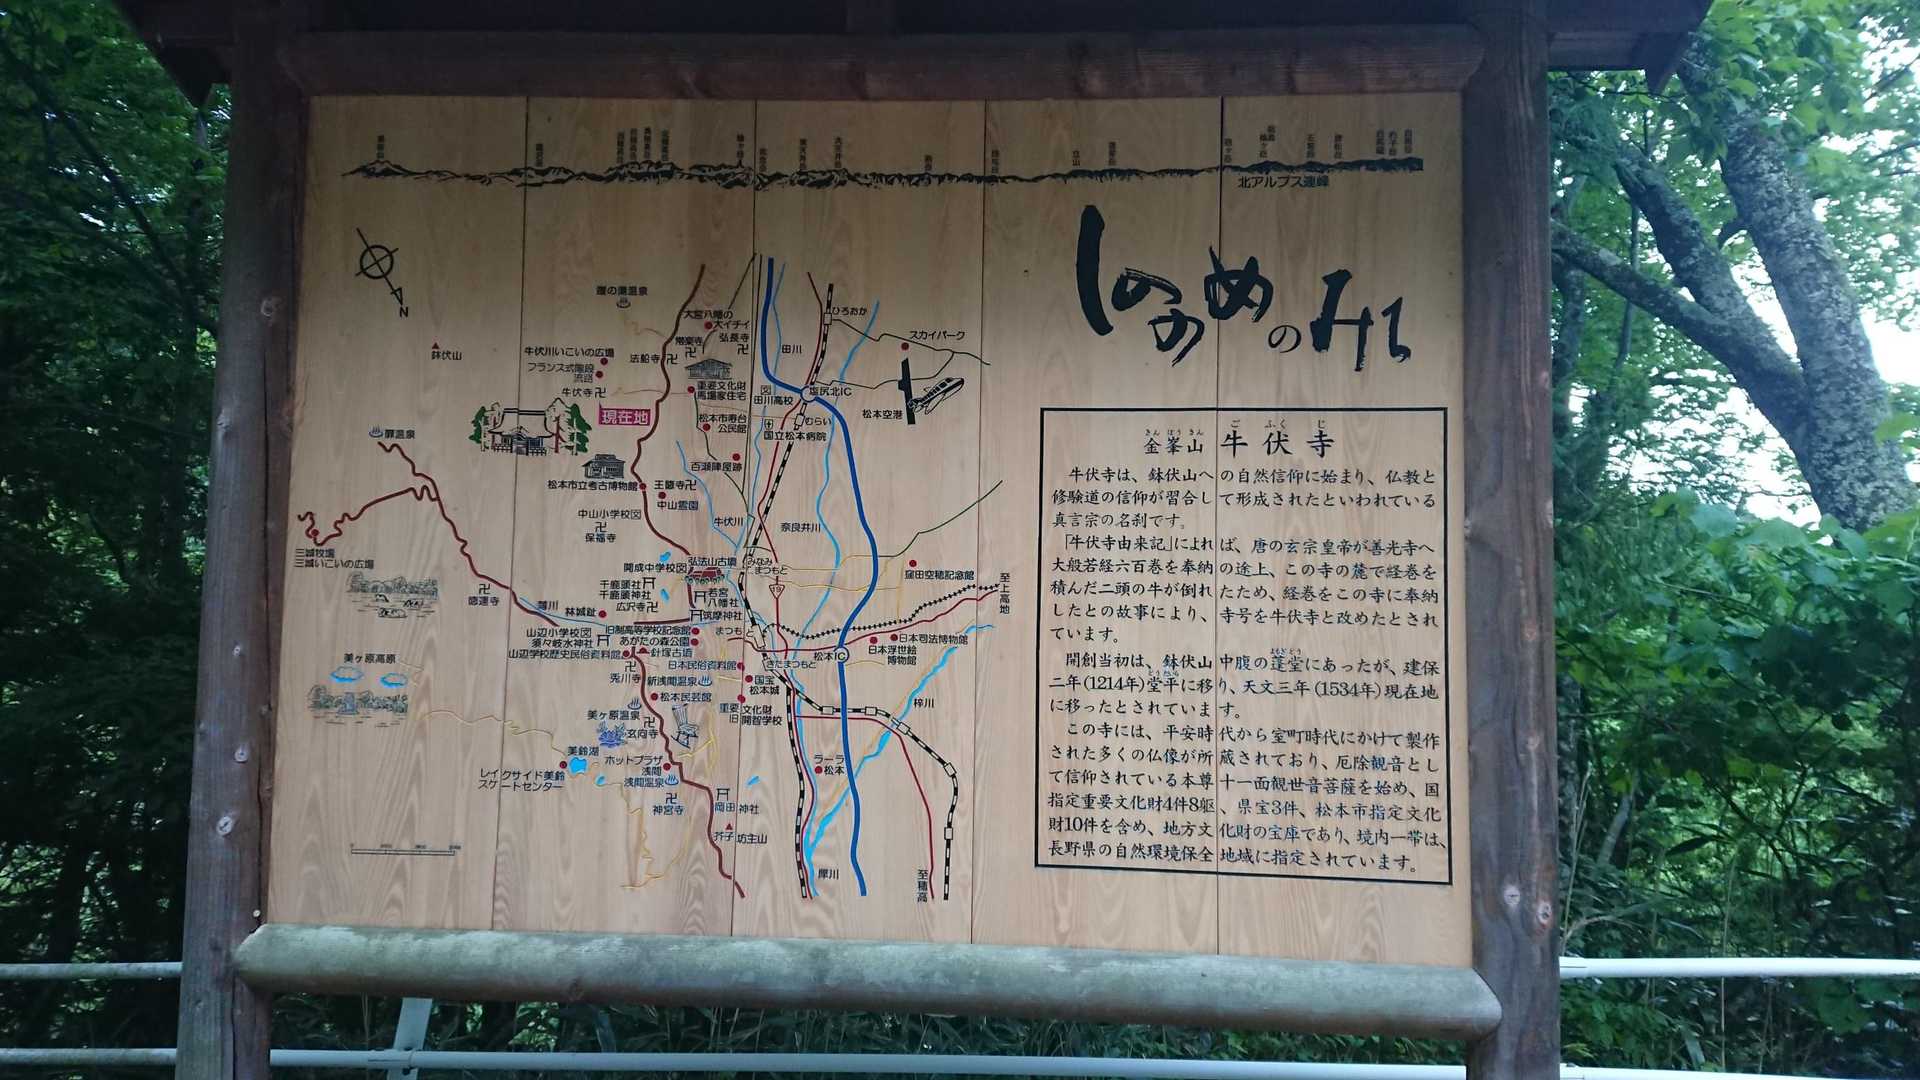 北アルプス連峰
しののめのみち
N
鉢伏山
崖の湯温泉
大宮八幡の
大イチイ
常楽寺
弘長寺
法船寺
牛伏川いこいの広場
フランス式階段
流路
牛伏寺
現在地
重要文化財
馬場家住宅
松本市寿台
公民館
百瀬陣屋跡
田川
田川高校
国立松本病院
ひろおか
塩尻北IC
むらい
スカイパーク
松本空港
扉温泉
松本市立考古博物館
王徳寺
中山霊園
中山小学校
保福寺
牛伏川
奈良井川
三城牧場
三城いこいの広場
徳運寺
開成中学校
弘法山古墳
みなみ
まつもと
19
窪田空穂記念館
至上高地
千鹿頭社
千鹿頭神社
広沢寺
若宮
八幡社
筑摩神社
薄川
林城趾
山辺小学校
須々岐水神社
山辺学校歴史民俗資料館
旧制高等学校記念館
あがたの森公園
針塚古墳
まつもと
きたまつもと
松本IC
日本司法博物館
日本浮世絵
博物館
日本民俗資料館
兎川寺
新浅間温泉
国宝
松本城
松本民芸館
重要文化財
旧開智学校
美ヶ原高原
美ヶ原温泉
玄向寺
梓川
美鈴湖
ホットプラザ
浅間
浅間温泉
レイクサイド美鈴
スケートセンター
神宮寺
ラーラ
松本
岡田神社
芥子坊主山
至穂高
金峯山 牛伏寺
きんぽうさん ごふくじ
牛伏寺は、鉢伏山への自然信仰に始まり、仏教と
修験道の信仰が習合して形成されたといわれている
真言宗の名刹です。
「牛伏寺由来記」によれば、唐の玄宗皇帝が善光寺へ
大般若経六百巻を奉納の途上、この寺の麓で経巻を
積んだ二頭の牛が倒れたため、経巻をこの寺に奉納
したとの故事により、寺号を牛伏寺と改めたとされ
ています。
開創当初は、鉢伏山中腹の蓬堂にあったが、建保
二年(1214年)堂平に移り、天文三年(1534年)現在地
に移ったとされています。
この寺には、平安時代から室町時代にかけて製作
された多くの仏像が所蔵されており、厄除観音とし
て信仰されている本尊十一面観世音菩薩を始め、国
指定重要文化財4件8躯、県宝3件、松本市指定文化
財10件を含め、地方文化財の宝庫であり、境内一帯は、
長野県の自然環境保全地域に指定されています。